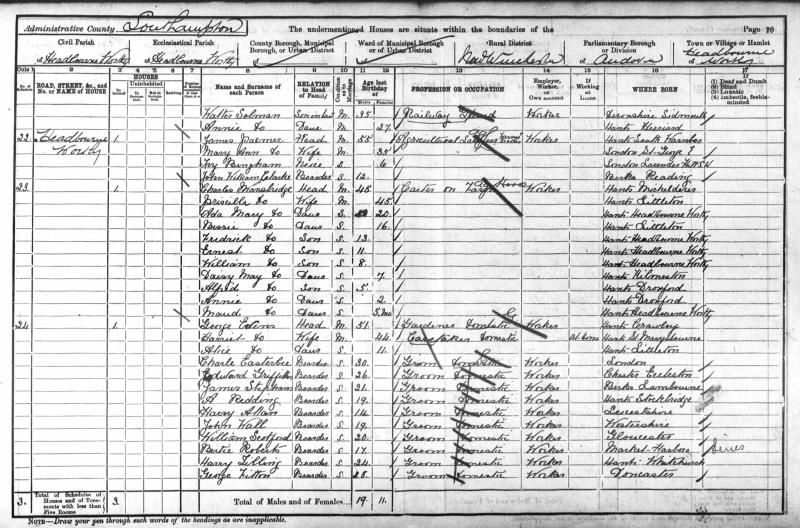 Administrative County Southampton
The undermentioned Houses are situate within the boundaries of the
Page 20
Civil Parish
of Headbourne Worthy
Ecclesiastical Parish
of Headbourne Worthy
County Borough, Municipal Borough, or Urban District
Ward of Municipal Borough or of Urban District
Rural District
of Winchester
Parliamentary Borough or Division
of Andover
Town or Village or Hamlet
of Headbourne Worthy
Cols 1 2 3 4 5 6 7 8 9 10 11 12 13 14 15 16 17
No. of Schedule
ROAD, STREET, &c., and No. or NAME of HOUSE
HOUSES
Inhabited
Uninhabited
In Occupation
Not in Occupation
Building
Name and Surname of each Person
RELATION to Head of Family
Condition as to Marriage
Age last Birthday of
Males
Females
PROFESSION OR OCCUPATION
Employer, Worker, or Own account
If Working at Home
WHERE BORN
(1) Deaf and Dumb
(2) Blind
(3) Lunatic
(4) Imbecile, feeble-minded
Walter Solman Son in law M 35 Railway Worker Devonshire Sidmouth
Annie Do Daur M 27 Hants Herriard
22 Headbourne Worthy 1 James Head M 55 Agricultural Worker Hants South Warnboro
Mary Ann Do Wife M London St George E
Ivy Bingham Niece S 6 London
John William Clarke Boarder S 12 Berks Reading
23 1 Charles Head M 45 Carter on Farm Worker Hants Micheldever
Priscilla Do Wife M 45 Hants Littleton
Ada Mary Do Daur S 20 Hants Headbourne Worthy
Do Daur S 16 Hants Littleton
Fredrick Do Son S 13 Hants Headbourne Worthy
Ernest Do Son S 11 Hants Headbourne Worthy
William Do Son S 8 Hants Headbourne Worthy
Daisy May Do Daur S 7 Hants Kilmeston
Alfred Do Son S 5 Hants Droxford
Annie Do Daur S 2 Hants Droxford
Maud Do Daur S 5 Mo Hants Headbourne Worthy
24 1 George Head M 51 Gardener Domestic Worker Hants Crawley
Harriet Do Wife M 44 Caretaker Domestic At home Hants St Marybourne
Alice Do Daur S 11 Hants Littleton
Charle Easterbee Boarder S 30 Groom Domestic Worker London
Edward Boarder S 26 Groom Domestic Worker Chester Eccleston
James Stephens Boarder S 21 Groom Domestic Worker Berks Lambourne
A Redding Boarder S 19 Groom Domestic Worker Hants Stockbridge
Harry Allan Boarder S 14 Groom Domestic Worker Leicestshire
John Wall Boarder S 19 Groom Domestic Worker Wostershire
William Boarder S 20 Groom Domestic Worker Gloucester
Bertie Roberts Boarder S 17 Groom Domestic Worker Market Harboro
Harry Tilling Boarder S 24 Groom Domestic Worker Hants Whitchurch
George Fitton Boarder S 28 Groom Domestic Worker Doncaster
3 Total of Schedules of Houses and of Tenements with less than Five Rooms 3
Total of Males and of Females... 19 11
NOTE—Draw your pen through such words of the headings as are inapplicable.